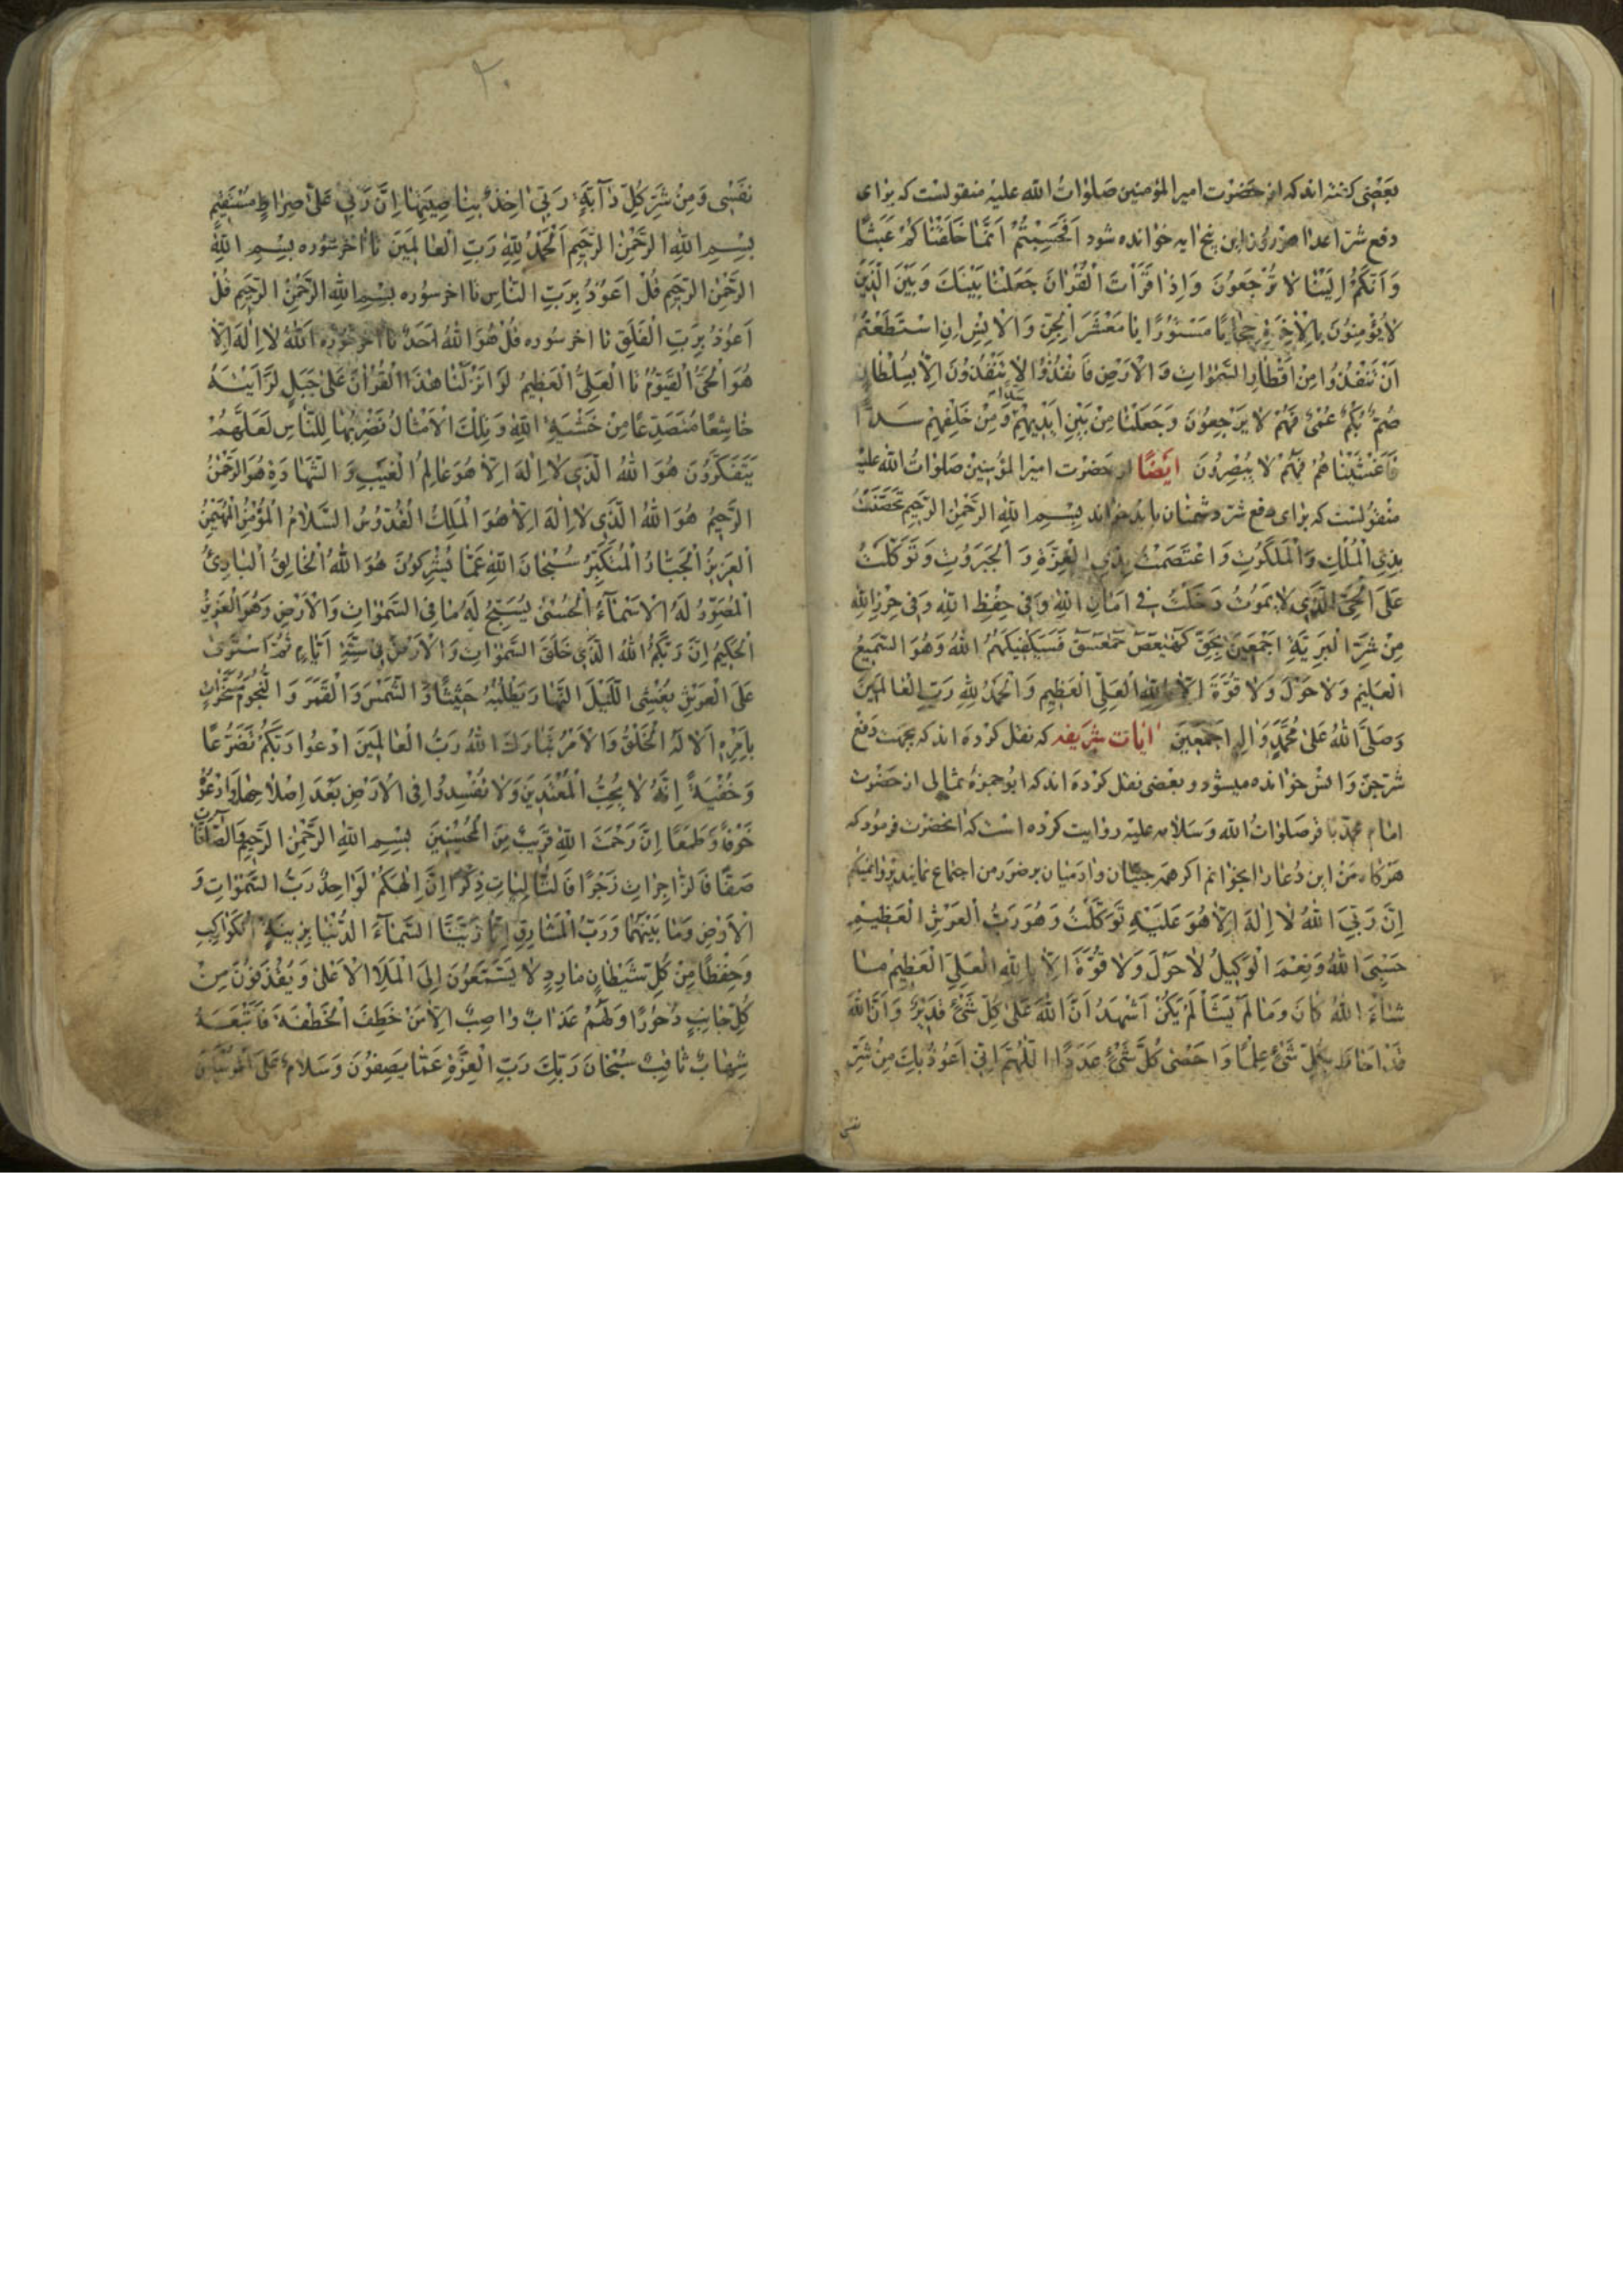 بَعْضی کفته‌اند که از حَضْرَت امیر المؤمنین صَلَوٰاتُ اللّه علیْه منقولست که برٰای
دفع شرّ اعدٰا هر روز این پنج ایه خوٰانده شود اَفَحَسِبْتُمْ اَنَّمٰا خَلَقْنٰاکُمْ عَبَثًا
وَ اَنَّکُمْ اِلَیْنٰا لاٰ تُرْجَعُونَ وَ اِذٰا قَرَأْتَ الْقُرْاٰنَ جَعَلْنٰا بَیْنَكَ وَ بَیْنَ الَّذینَ
لاٰ یُؤْمِنُونَ بِالْاٰخِرَةِ حِجٰابًا مَسْتُورًا یٰا مَعْشَرَ الْجِنِّ وَ الْاِنْسِ اِنِ اسْتَطَعْتُمْ
اَنْ تَنْفُذُوا مِنْ اَقْطٰارِ السَّمٰوٰاتِ وَ الْاَرْضِ فَانْفُذُوا لاٰ تَنْفُذُونَ اِلّاٰ بِسُلْطٰانٍ
صُمٌّ بُکْمٌ عُمْیٌ فَهُمْ لاٰ یَرْجِعُونَ وَ جَعَلْنٰا مِنْ بَیْنِ اَیْدِیهِمْ سَدًّا وَ مِنْ خَلْفِهِمْ سَدًّا
فَاَغْشَیْنٰاهُمْ فَهُمْ لاٰ یُبْصِرُونَ ایَضًا از حَضرْت امیر المؤمنین صَلوٰاتُ اللّه علیْه
منقولسْت که برٰای دفع شرّ دشمنٰان باید خوٰاند بِسْمِ اللّٰهِ الرَّحْمٰنِ الرَّحیمِ تَحَصَّنْتُ
بِذِی الْمُلْكِ وَ الْمَلَکُوتِ وَ اعْتَصَمْتُ بِذِی الْعِزَّةِ وَ الْجَبَرُوتِ وَ تَوَکَّلْتُ
عَلَی الْحَیِّ الَّذی لاٰ یَمُوتُ دَخَلْتُ فی اَمٰانِ اللّٰهِ وَ فی حِفْظِ اللّٰهِ وَ فی حِرْزِ اللّٰهِ
مِنْ شَرِّ الْبَرِیَّةِ اَجْمَعینَ بِحَقِّ کٓهٰیٰعٓصٓ حٰمٓعٓسٓقٓ فَسَیَکْفیکَهُمُ اللّٰهُ وَ هُوَ السَّمیعُ
الْعَلیمُ وَ لاٰ حَوْلَ وَ لاٰ قُوَّةَ اِلّاٰ بِاللّٰهِ الْعَلِیِّ الْعَظیمِ وَ الْحَمْدُ لِلّٰهِ رَبِّ الْعٰالَمینَ
وَ صَلَّی اللّٰهُ عَلیٰ مُحَمَّدٍ وَ اٰلِهِ اَجْمَعینَ ایٰات شریفه که نقل کرْدَه اند که بجهت دَفْع
شرّ جنّ وَ انسْ خوٰانده میشود و بعضی نقل کرْدَه اند که ابُو حمزهٔ ثمٰالی از حَضْرَت
امٰام محمّد باقر صَلوٰاتُ اللّه وَ سَلاٰمه علیْه روٰایت کرْده است که انحضْرت فرمود که
هَرْکٰاه مَنْ این دُعٰا رٰا بخوٰانم اکر همه جنّیٰان و ادَمیٰان بر ضرر من اجتماع نمایند پرْوٰا نمیکنم
اِنَّ رَبِّیَ اللّٰهُ لاٰ اِلٰهَ اِلّاٰ هُوَ عَلَیْهِ تَوَکَّلْتُ وَ هُوَ رَبُّ الْعَرْشِ الْعَظیمِ
حَسْبِیَ اللّٰهُ وَ نِعْمَ الْوَکیلُ لاٰ حَوْلَ وَ لاٰ قُوَّةَ اِلّاٰ بِاللّٰهِ الْعَلِیِّ الْعَظیمِ مٰا
شٰاءَ اللّٰهُ کٰانَ وَ مٰا لَمْ یَشَأْ لَمْ یَکُنْ اَشْهَدُ اَنَّ اللّٰهَ عَلیٰ کُلِّ شَیْءٍ قَدیرٌ وَ اَنَّ اللّٰهَ
قَدْ اَحٰاطَ بِکُلِّ شَیْءٍ عِلْمًا وَ اَحْصیٰ کُلَّ شَیْءٍ عَدَدًا اَللّٰهُمَّ اِنّی اَعُوذُ بِكَ مِنْ شَرِّ
نفسی
۲۰
نَفْسی وَ مِنْ شَرِّ کُلِّ دٰآبَّةٍ رَبّی اٰخِذٌ بِنٰاصِیَتِهٰا اِنَّ رَبّی عَلیٰ صِرٰاطٍ مُسْتَقیمٍ
بِسْمِ اللّٰهِ الرَّحْمٰنِ الرَّحیمِ اَلْحَمْدُ لِلّٰهِ رَبِّ الْعٰالَمینَ تٰا اٰخر سُوره بِسْمِ اللّٰهِ
الرَّحْمٰنِ الرَّحیمِ قُلْ اَعُوذُ بِرَبِّ النّٰاسِ تٰا اخر سُوره بِسْمِ اللّٰهِ الرَّحْمٰنِ الرَّحیمِ قُلْ
اَعُوذُ بِرَبِّ الْفَلَقِ تٰا اخر سُوره قُلْ هُوَ اللّٰهُ اَحَدٌ تٰا اخر سُوره اَللّٰهُ لاٰ اِلٰهَ اِلّاٰ
هُوَ الْحَیُّ الْقَیُّومُ تٰا الْعَلِیُّ الْعَظیمُ لَوْ اَنْزَلْنٰا هٰذَا الْقُرْاٰنَ عَلیٰ جَبَلٍ لَرَاَیْتَهُ
خٰاشِعًا مُتَصَدِّعًا مِنْ خَشْیَةِ اللّٰهِ وَ تِلْكَ الْاَمْثٰالُ نَضْرِبُهٰا لِلنّٰاسِ لَعَلَّهُمْ
یَتَفَکَّرُونَ هُوَ اللّٰهُ الَّذی لاٰ اِلٰهَ اِلّاٰ هُوَ عٰالِمُ الْغَیْبِ وَ الشَّهٰادَةِ هُوَ الرَّحْمٰنُ
الرَّحیمُ هُوَ اللّٰهُ الَّذی لاٰ اِلٰهَ اِلّاٰ هُوَ الْمَلِكُ الْقُدُّوسُ السَّلاٰمُ الْمُؤْمِنُ الْمُهَیْمِنُ
الْعَزیزُ الْجَبّٰارُ الْمُتَکَبِّرُ سُبْحٰانَ اللّٰهِ عَمّٰا یُشْرِکُونَ هُوَ اللّٰهُ الْخٰالِقُ الْبٰارِئُ
الْمُصَوِّرُ لَهُ الْاَسْمٰآءُ الْحُسْنیٰ یُسَبِّحُ لَهُ مٰا فِی السَّمٰوٰاتِ وَ الْاَرْضِ وَ هُوَ الْعَزیزُ
الْحَکیمُ اِنَّ رَبَّکُمُ اللّٰهُ الَّذی خَلَقَ السَّمٰوٰاتِ وَ الْاَرْضَ فی سِتَّةِ اَیّٰامٍ ثُمَّ اسْتَویٰ
عَلَی الْعَرْشِ یُغْشِی اللَّیْلَ النَّهٰارَ یَطْلُبُهُ حَثیثًا وَ الشَّمْسَ وَ الْقَمَرَ وَ النُّجُومَ مُسَخَّرٰاتٍ
بِاَمْرِهِ اَلاٰ لَهُ الْخَلْقُ وَ الْاَمْرُ تَبٰارَكَ اللّٰهُ رَبُّ الْعٰالَمینَ ادْعُوا رَبَّکُمْ تَضَرُّعًا
وَ خُفْیَةً اِنَّهُ لاٰ یُحِبُّ الْمُعْتَدینَ وَ لاٰ تُفْسِدُوا فِی الْاَرْضِ بَعْدَ اِصْلاٰحِهٰا وَ ادْعُوهُ
خَوْفًا وَ طَمَعًا اِنَّ رَحْمَتَ اللّٰهِ قَریبٌ مِنَ الْمُحْسِنینَ بِسْمِ اللّٰهِ الرَّحْمٰنِ الرَّحیمِ وَ الصّٰآفّٰاتِ
صَفًّا فَالزّٰاجِرٰاتِ زَجْرًا فَالتّٰالِیٰاتِ ذِکْرًا اِنَّ اِلٰهَکُمْ لَوٰاحِدٌ رَبُّ السَّمٰوٰاتِ وَ
الْاَرْضِ وَ مٰا بَیْنَهُمٰا وَ رَبُّ الْمَشٰارِقِ اِنّٰا زَیَّنَّا السَّمٰآءَ الدُّنْیٰا بِزینَةٍ الْکَوٰاکِبِ
وَ حِفْظًا مِنْ کُلِّ شَیْطٰانٍ مٰارِدٍ لاٰ یَسَّمَّعُونَ اِلَی الْمَلَاِ الْاَعْلیٰ وَ یُقْذَفُونَ مِنْ
کُلِّ جٰانِبٍ دُحُورًا وَ لَهُمْ عَذٰابٌ وٰاصِبٌ اِلّاٰ مَنْ خَطِفَ الْخَطْفَةَ فَاَتْبَعَهُ
شِهٰابٌ ثٰاقِبٌ سُبْحٰانَ رَبِّكَ رَبِّ الْعِزَّةِ عَمّٰا یَصِفُونَ وَ سَلاٰمٌ عَلَی الْمُرْسَلینَ